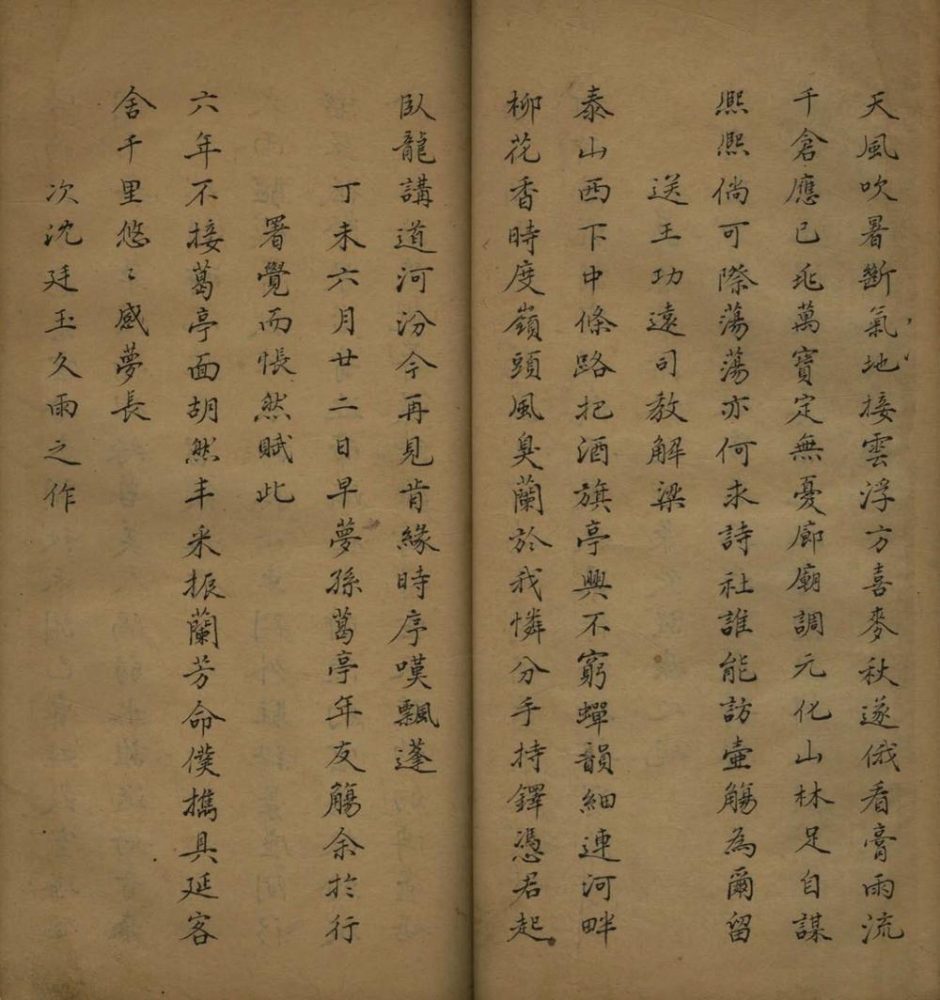 天風吹暑斷氣地接雲浮方喜麥秋遂俄看膏雨流
千倉應已兆萬寶定無憂廊廟調元化山林足自謀
熙熙倘可際蕩蕩亦何求詩社誰能訪壺觴為爾留
送王功遠司教解梁
泰山西下中條路把酒旗亭興不窮蟬韻細連河畔
柳花香時度嶺頭風臭蘭於我憐分手持鐸憑君起
臥龍講道河汾今再見肯緣時序嘆飄蓬
丁未六月廿二日早夢孫葛亭年友觴余於行
署覺而悵然賦此
六年不接葛亭面胡然丰采振蘭芳命僕攜具延客
舍千里悠〻感夢長
次沈廷玉久雨之作